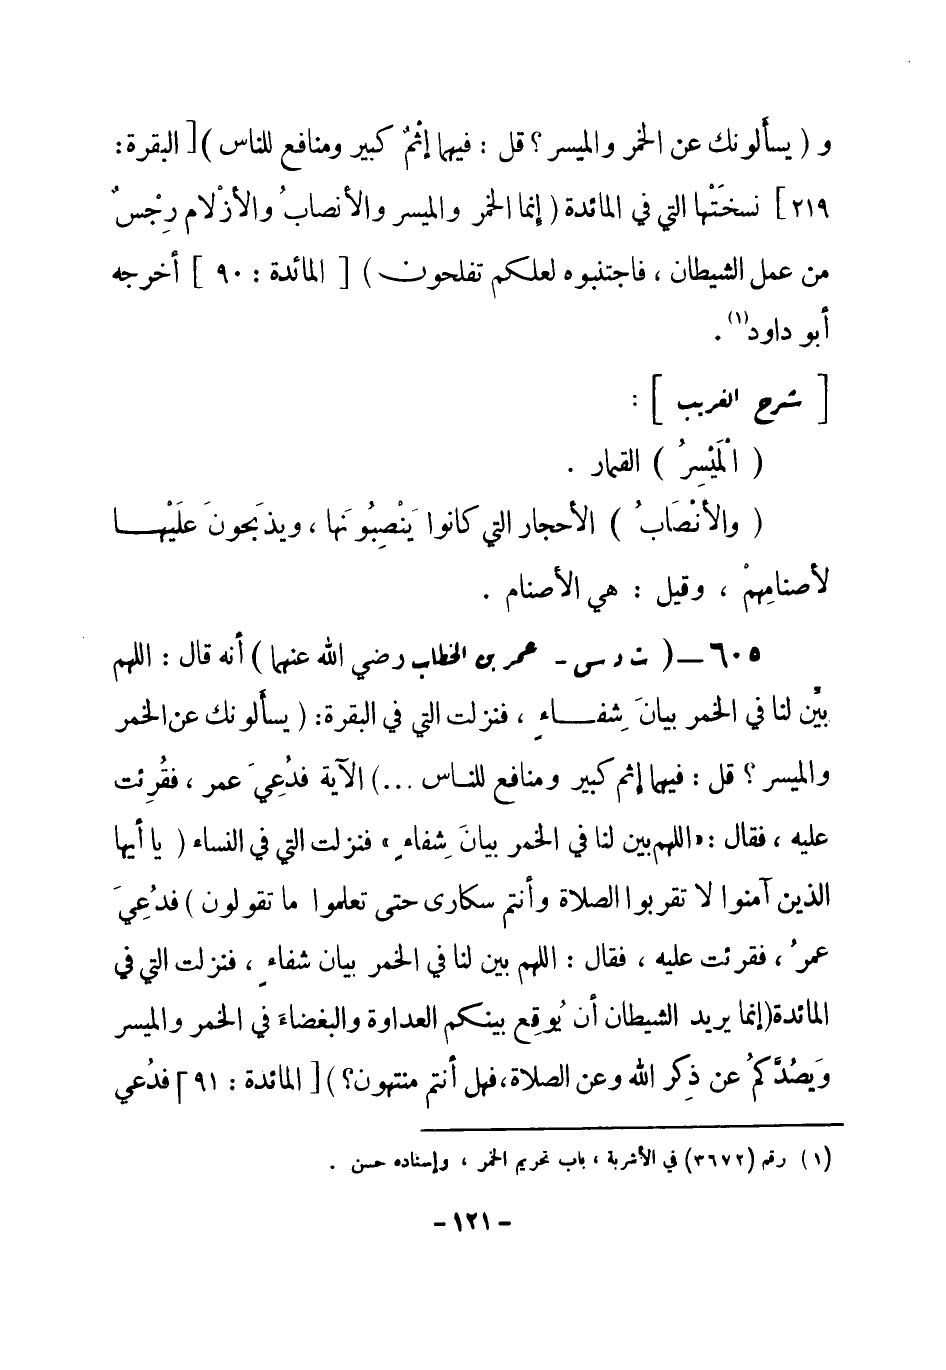 و ( يسألونك عن الخمر والميسر ؟ قل : فيهما إثمٌ كبير ومنافع للناس ) [ البقرة :
٢١٩ ] نسخَتْها التي في المائدة ( إنما الخمر والميسر والأنصابُ والأزْلام رِجْسٌ
من عمل الشيطان ، فاجتنبوه لعلكم تفلحون ) [ المائدة : ٩٠ ] أخرجه
أبو داود(١) .
[ شرح الغريب ] :
( الْمَيْسِرُ ) القمار .
( والأنْصَابُ ) الأحجار التي كانوا يَنْصِبُونَها ، ويذبَحونَ علَيْهـــا
لأصنامِهمْ ، وقيل : هي الأصنام .
٦٠٥ – ( ت د س – عمر بن الخطاب رضي الله عنهما ) أنه قال : اللهم
بيِّن لنا في الخمر بيانَ شِفـــاءٍ ، فنزلت التي في البقرة : ( يسألونك عن الخمر
والميسر ؟ قل : فيهما إثم كبير ومنافع للنـاس ... ) الآية فدُعِيَ عمر ، فقُرِئت
عليه ، فقال : « اللهم بين لنا في الخمر بيانَ شِفاءٍ » فنزلت التي في النساء ( يا أيها
الذين آمنوا لا تقربوا الصلاة وأنتم سكارى حتى تعلموا ما تقولون ) فدُعِيَ
عمرُ ، فقرئت عليه ، فقال : اللهم بين لنا في الخمر بيان شفاءٍ ، فنزلت التي في
المائدة ( إنما يريد الشيطان أن يُوقِع بينكم العداوة والبغضاءَ في الخمر والميسر
وَيصُدَّكمُ عن ذِكر الله وعن الصلاة ، فهل أنتم منتهون ؟ ) [ المائدة : ٩١ ] فدُعي
(١) رقم (٣٦٧٢) في الأشربة ، باب تحريم الخمر ، وإسناده حسن .
– ١٢١ –